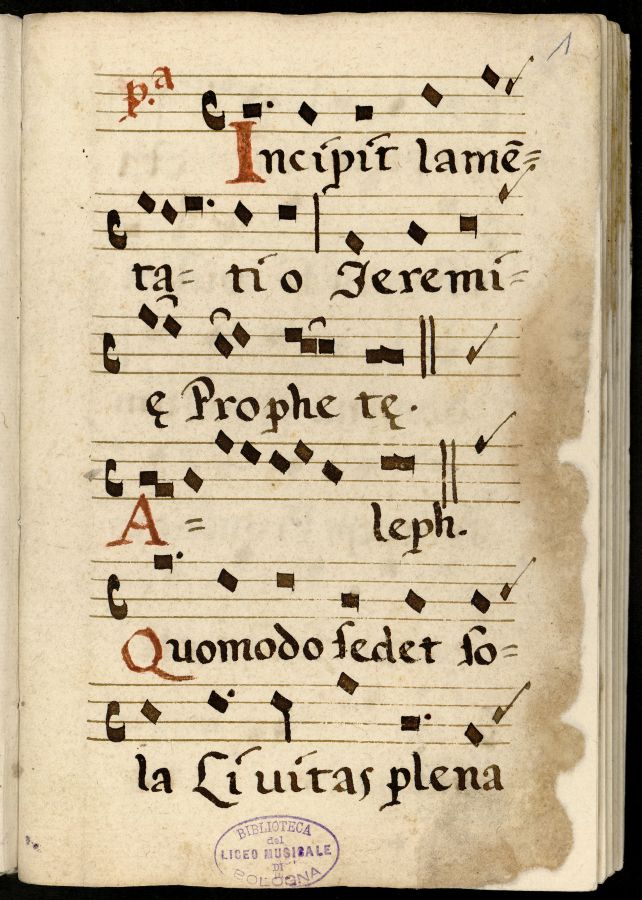 1
p.a
Incipit lamē=
ta= tio Jeremi=
ę Prophe tę.
A = leph.
Quomodo sedet so=
la Ciuitas plena
BIBLIOTECA
del
LICEO MUSICALE
DI
BOLOGNA